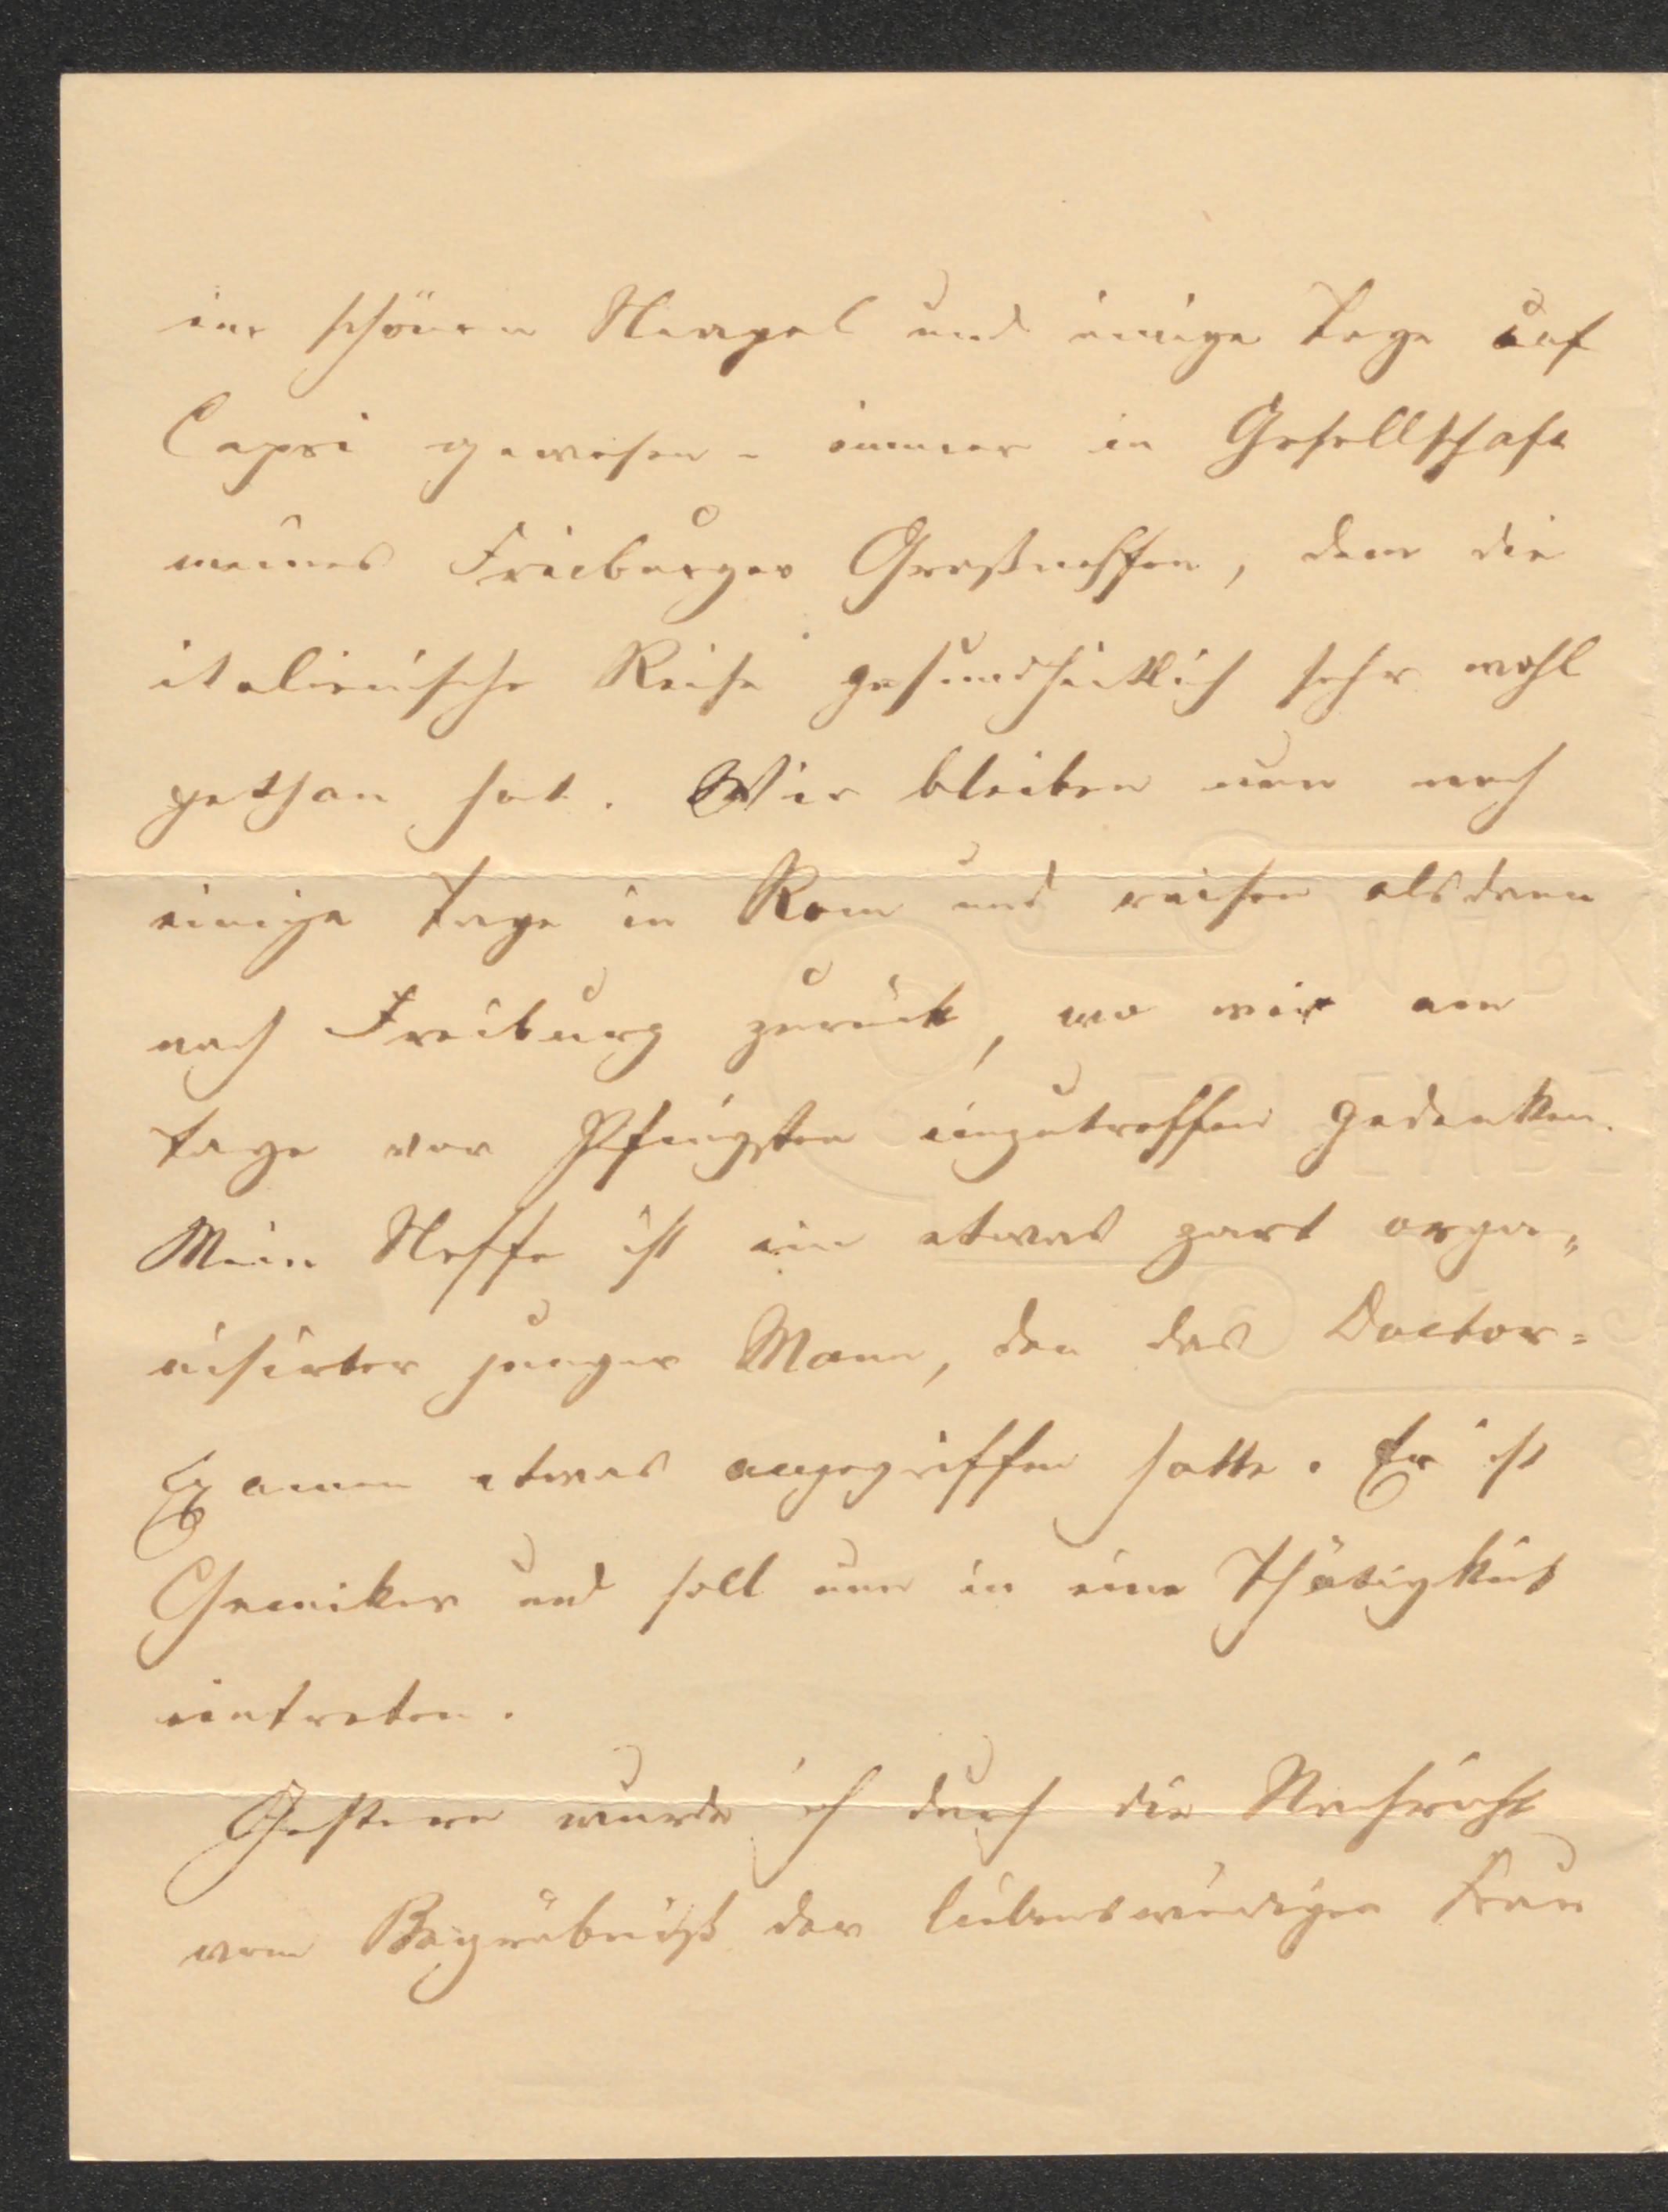 im schönen Neapel und einige Tage auf
Capri gewesen - immer in Gesellschaft
meines Freiburger Großneffen, dem die
italienische Reise gesundheitlich sehr wohl
gethan hat. Wir bleiben nun noch
einige Tage in Rom und reisen alsdann
nach Freiburg zurück, wo wir am
Tage vor Pfingsten einzutreffen gedenken.
Mein Neffe ist ein etwas zart orga=
nisirter junger Mann, den das Doctor=
Examen etwas angegriffen hatte. Er ist
Chemiker und soll nun in eine Thätigkeit
eintreten.
Gestern wurde ich durch die Nachricht
vom Begräbniß der liebenswürdigen Frau